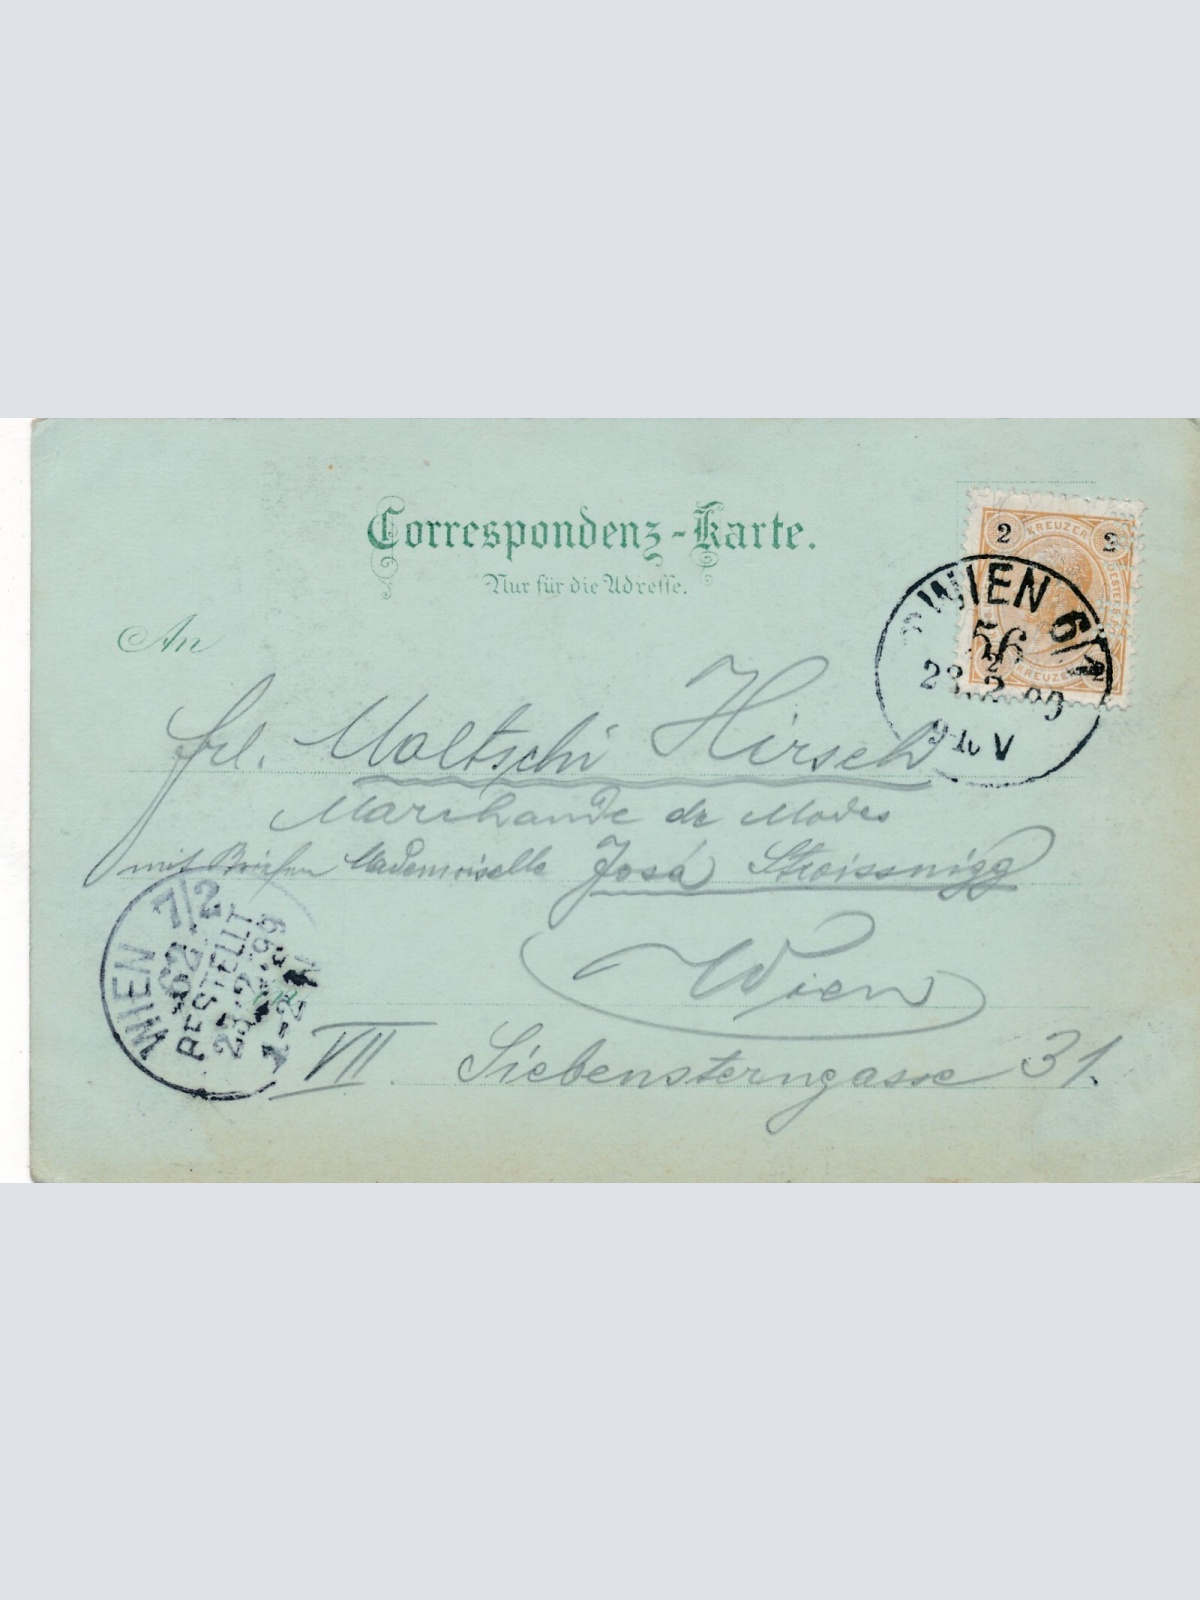 Correspondenz-Karte.
Nur für die Adresse.
An
2 KREUZER 2
KREUZER 2
WIEN 6/1
56
23.2.99
9-10 V
Frl. Maltschi Hirsch
Marchande de Modes
mit Mademoiselle Josa Stroissnigg
Wien
VII. Siebensterngasse 31.
WIEN 7/2
62
BESTELLT
23.2.99
1-2 N